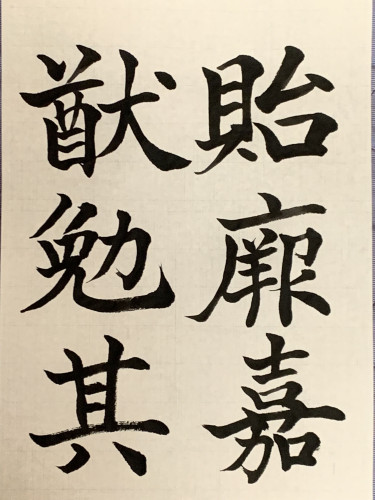 貽厥嘉
猷勉其